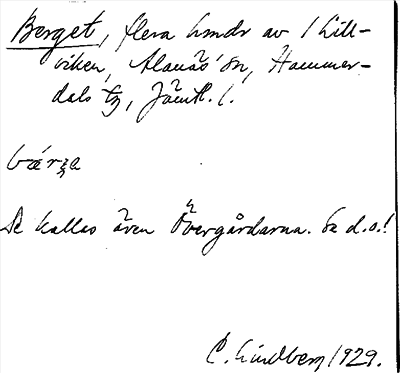 Berget, flera hmdr av / Lill-
viken, Alanäs sn, Hammer-
dals tg, Jämtl. l.
bærʒa
De kallas även Övergårdarna. Se d.o.!
C. Lindberg 1929.